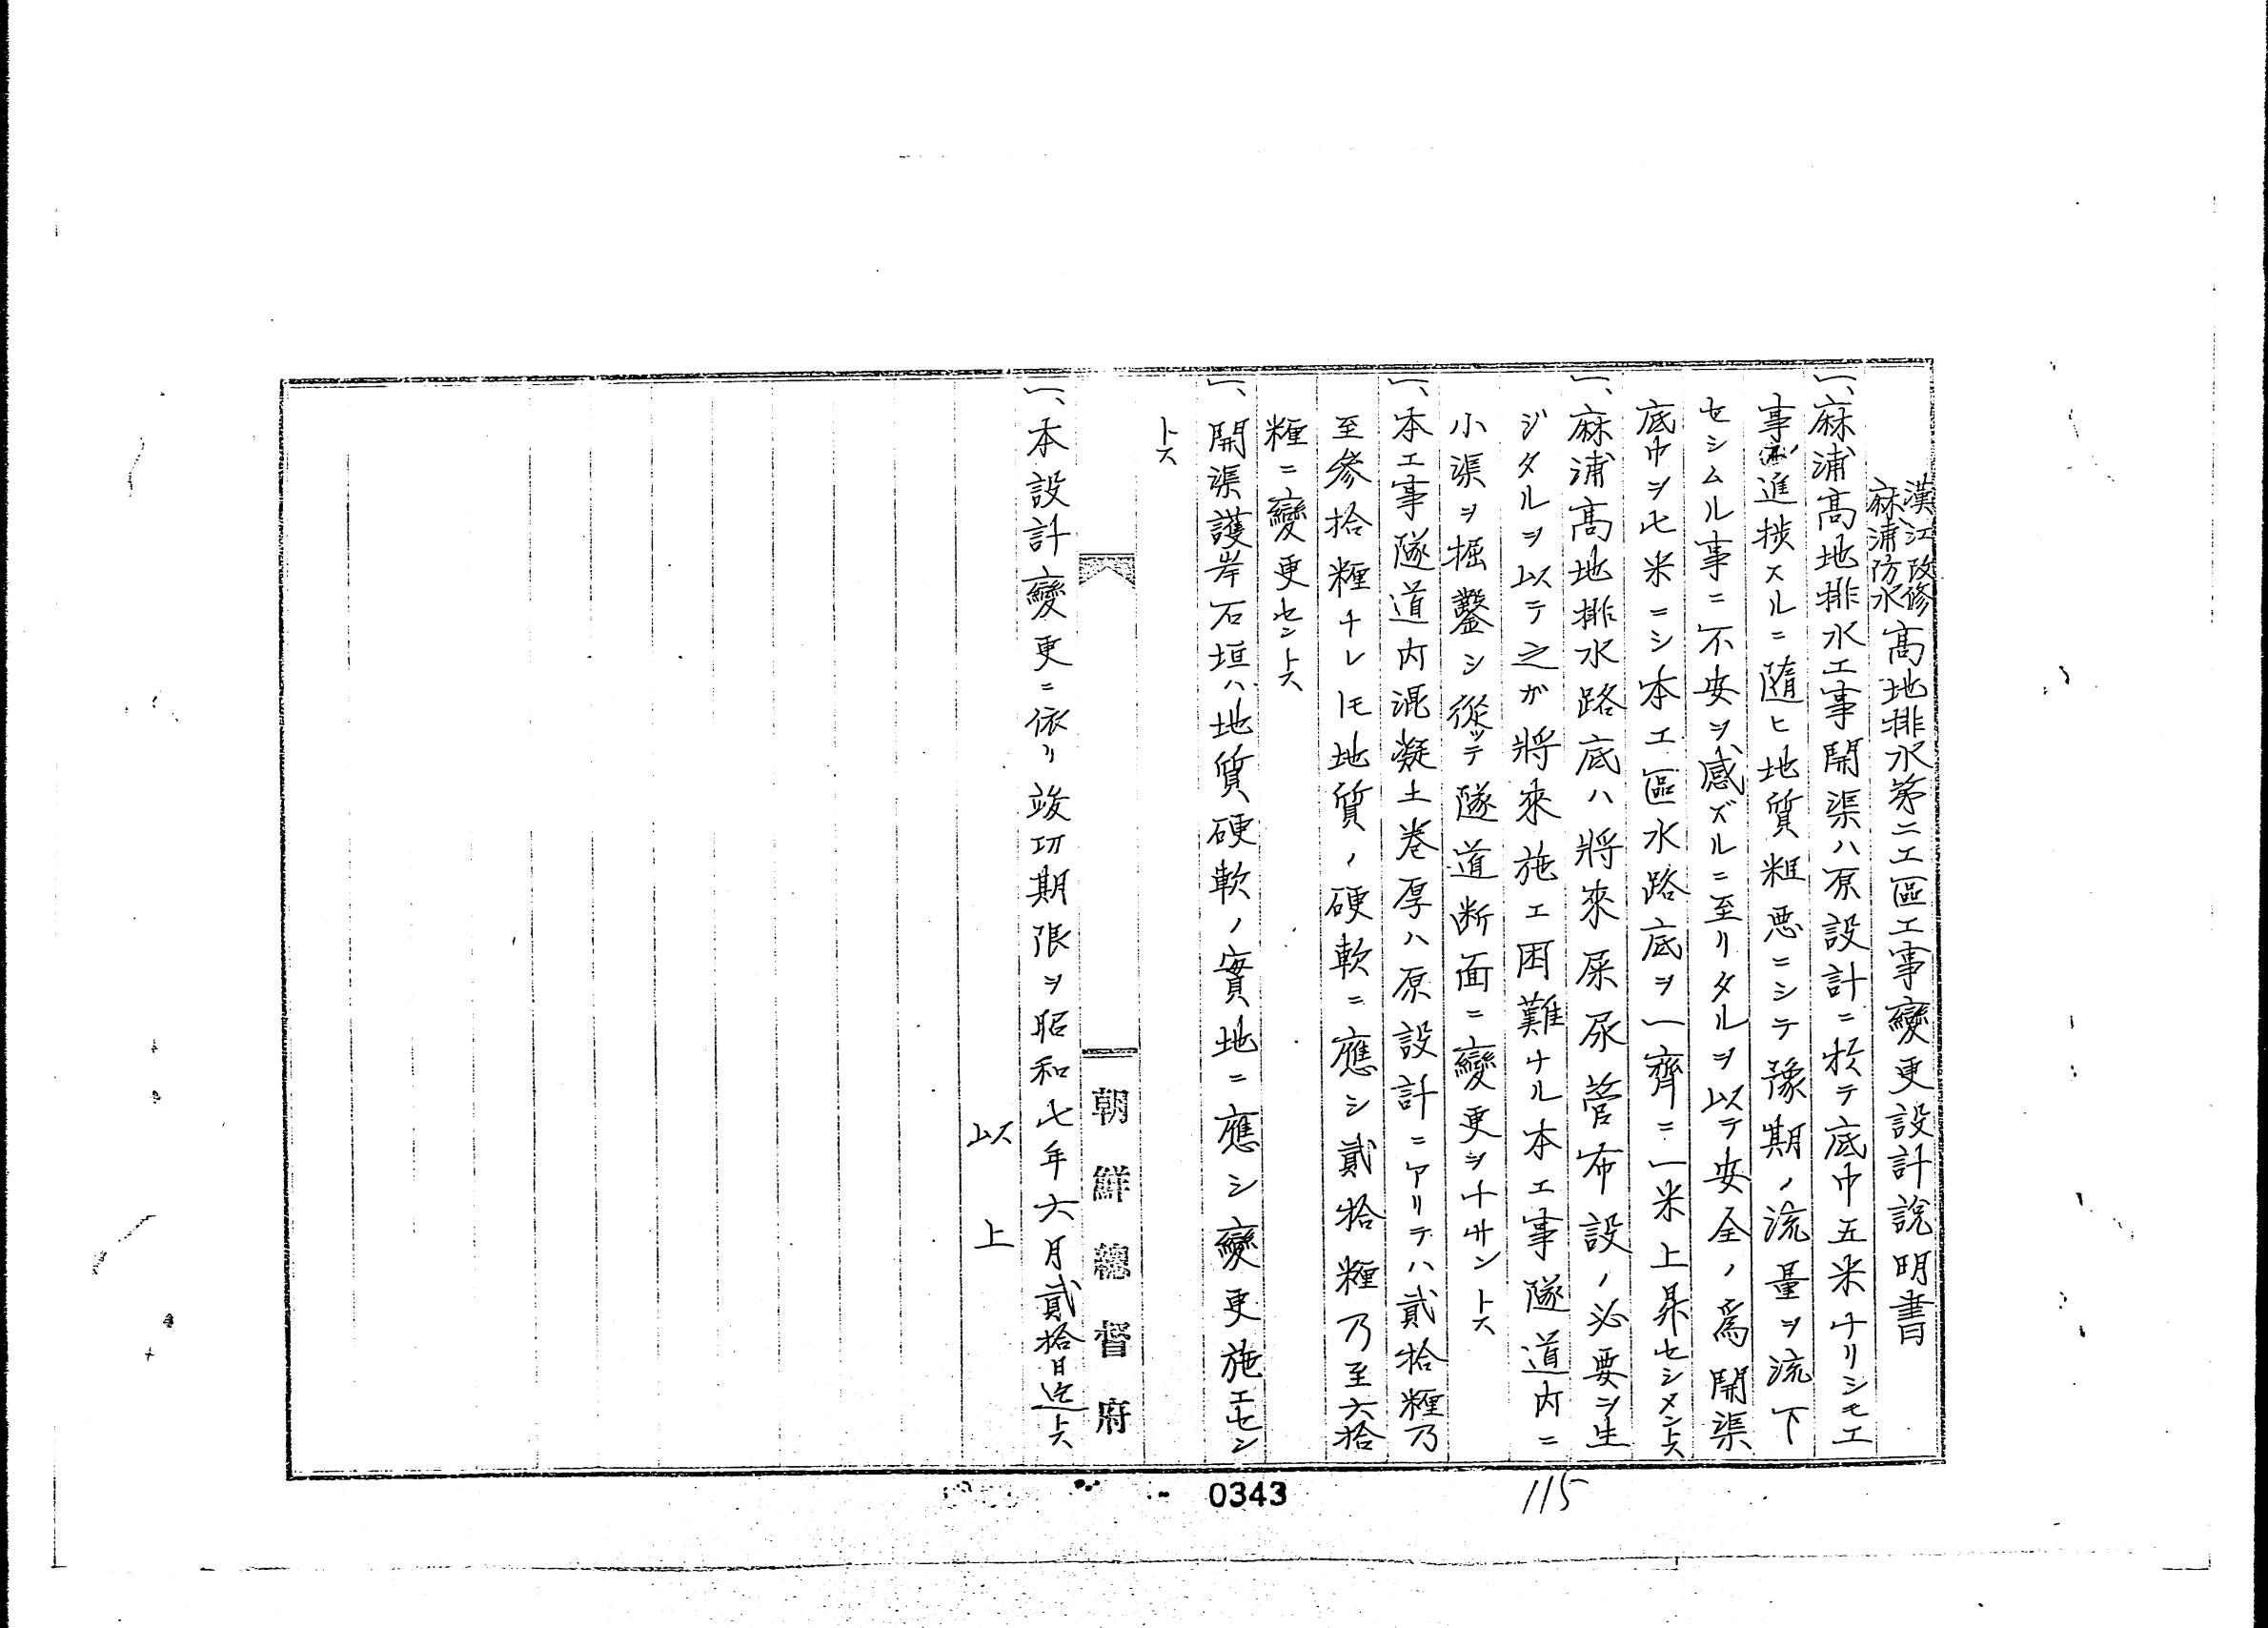 漢江改修
麻浦防水
高地排水第二工區工事變更設計說明書
一、麻浦高地排水工事開渠ハ原設計ニ於テ底巾五米ナリシモ工
事進捗スルニ隨ヒ地質粗悪ニシテ豫期ノ流量ヲ流下
セシムル事ニ不安ヲ感ズルニ至リタルヲ以テ安全ノ爲開渠
底巾ヲ七米ニシ本工區水路底ヲ一齊ニ一米上昇セシメントス
一、麻浦高地排水路底ハ將來屎尿管布設ノ必要ヲ生
ジタルヲ以テ之ガ將來施工困難ナル本工事隧道内ニ
小渠ヲ掘鑿シ從ッテ隧道断面ニ變更ヲナサントス
一、本工事隧道内混凝土卷厚ハ原設計ニアリテハ貳拾糎乃
至參拾糎ナレトモ地質ノ硬軟ニ應シ貳拾糎乃至六拾
糎ニ變更セントス
一、開渠護岸石垣ハ地質硬軟ノ實地ニ應シ變更施工セン
トス
朝鮮總督府
一、本設計變更ニ依リ竣功期限ヲ昭和七年六月貳拾日迄トス
以上
0343
115